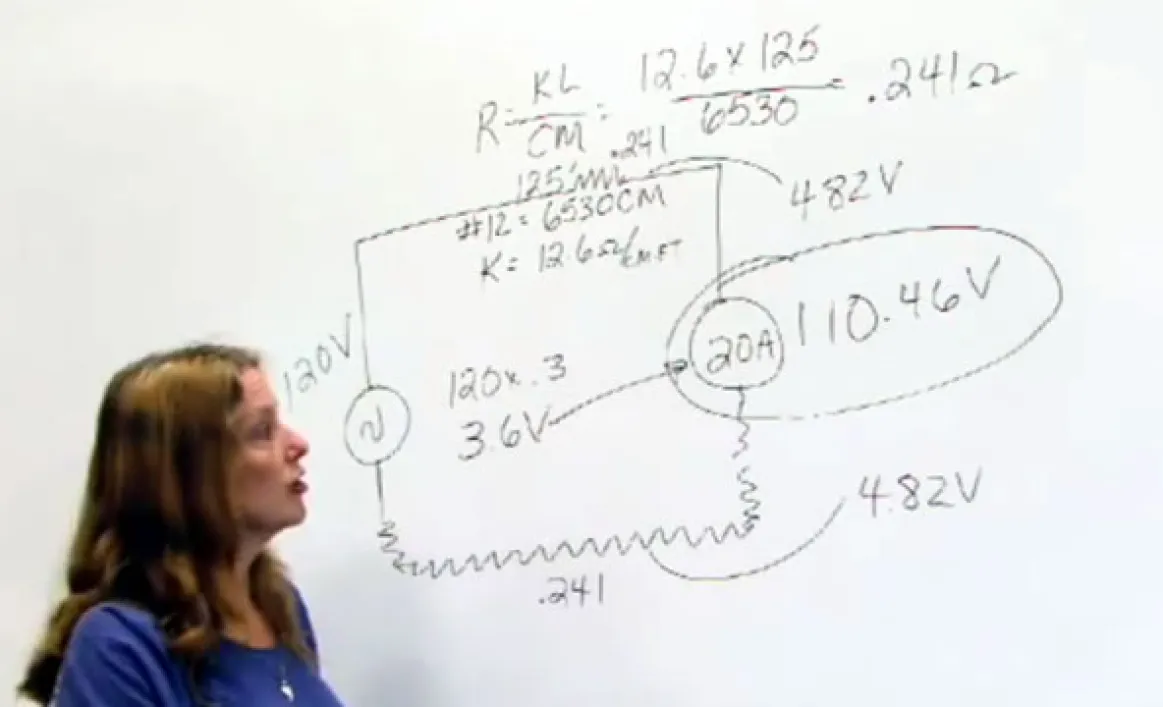 R = KL/CM = 12.6 x 125/6530 = .241Ω
.241
125'
4.82V
#12 = 6530CM
K = 12.6Ω/CM.FT
120V
120 x .3
3.6V
20A
110.46V
4.82V
.241